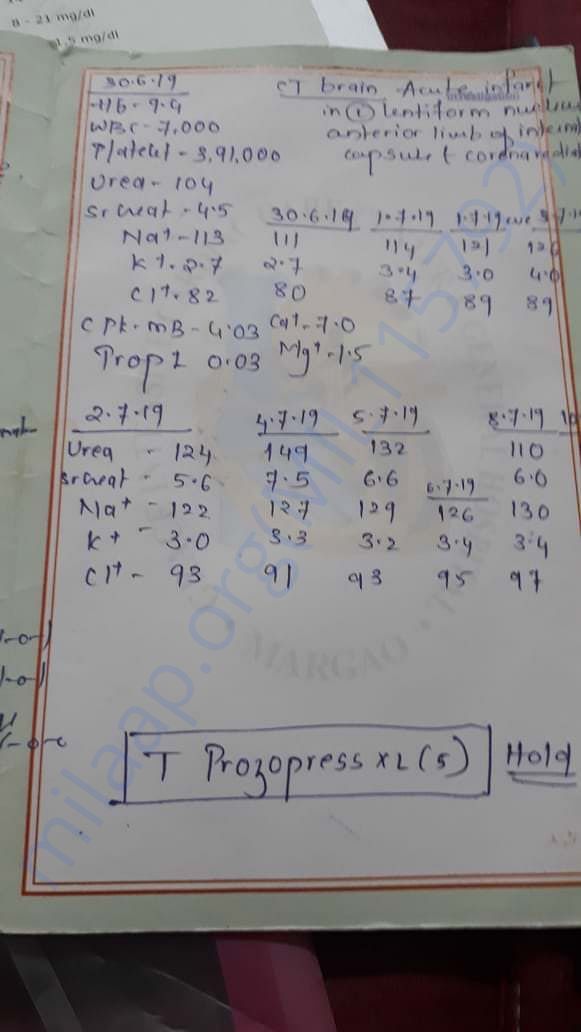 8 - 21 mg/dl
1.5 mg/dl
30.6.19
Hb - 9.4
WBC - 7,000
Platelet - 3,91,000
Urea - 104
Sr creat - 4.5
Na+ - 113
K+ - 2.7
Cl+ - 82
CPK-MB - 4.03
Trop I 0.03
CT brain - Acute infarct
in (L) lentiform nucleus
anterior limb of internal
capsule & corona radiata
30.6.19 1.7.19 1.7.19 eve 3.7.19
111 114 121 126
2.7 3.4 3.0 4.0
80 87 89 89
Ca+ - 7.0
Mg+ - 1.5
2.7.19 4.7.19 5.7.19 8.7.19
Urea - 124 149 132 110
Sr creat - 5.6 7.5 6.6 6.0
6.7.19
Na+ - 122 127 129 126 130
K+ - 3.0 3.3 3.2 3.4 3.4
Cl+ - 93 91 93 95 97
T Prozopress XL (5) Hold
MARGAO
milaap.org